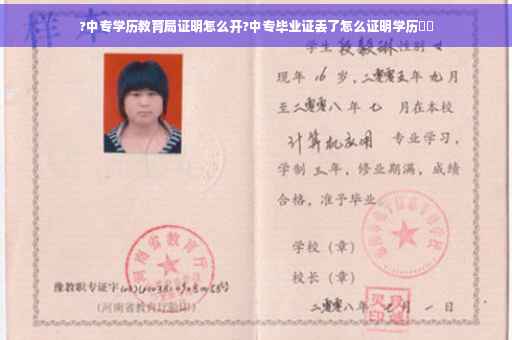 ?中专学历教育局证明怎么开?中专毕业证丢了怎么证明学历
样本
学生段毅琳性别女
现年16岁,二零零五年九月
至二零零八年七月在本校
计算机应用 专业学习,
学制三年,修业期满,成绩
合格,准予毕业。
学校(章)
校长(章)
二零零八年 月一日
河南省教育厅
豫教职专证字
(河南省教育厅验印)